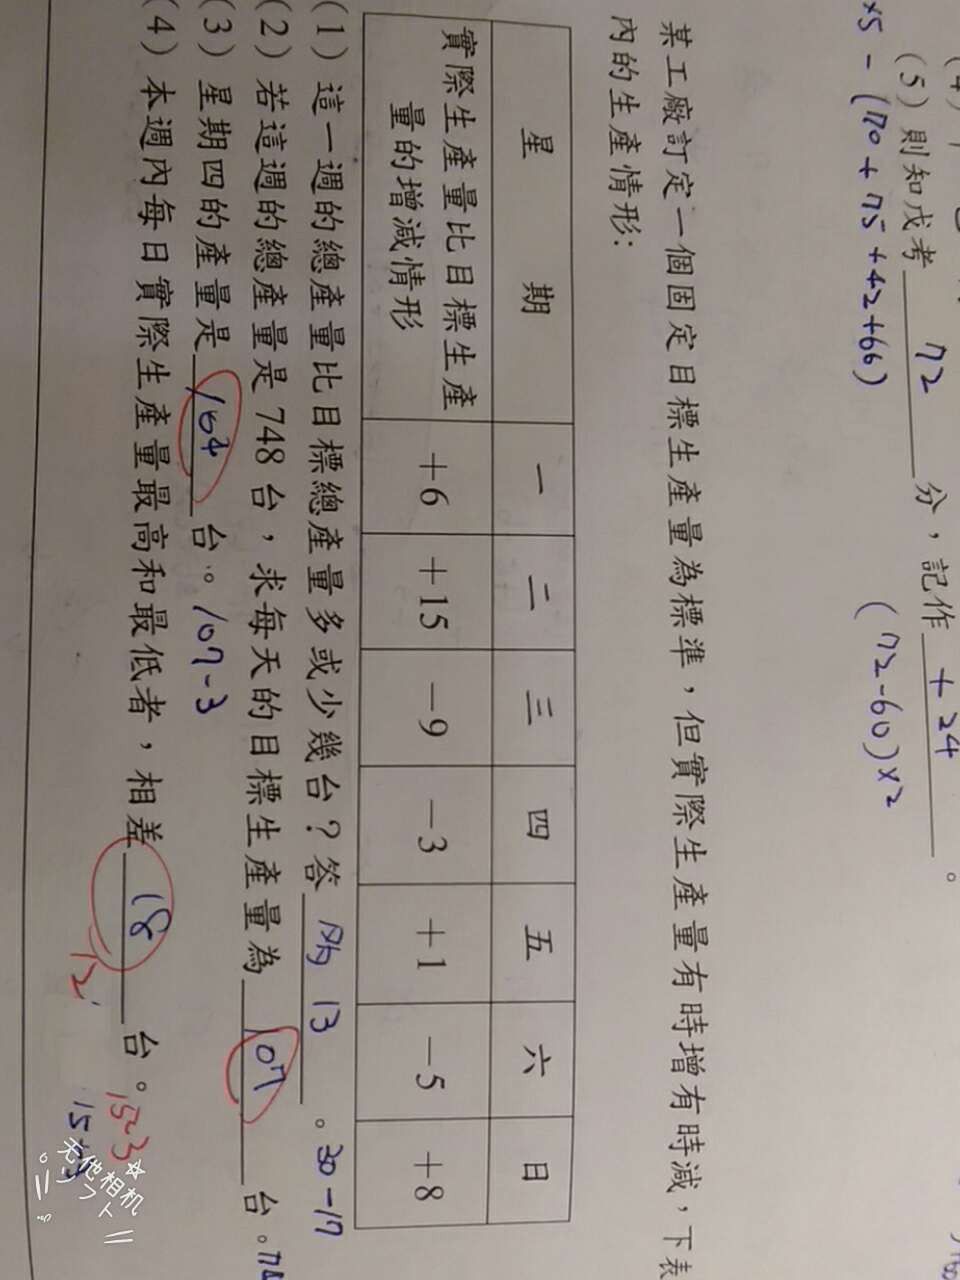 (5)則知戊考 72 分，記作 +24 。
×5 - (70+75+42+66)
(72-60)×2
某工廠訂定一個固定目標生產量為標準，但實際生產量有時增有時減，下表
內的生產情形：
星 期 一 二 三 四 五 六 日
實際生產量比目標生產
量的增減情形 +6 +15 -9 -3 +1 -5 +8
(1) 這一週的總產量比目標總產量多或少幾台？答 多 13 。 30-17
(2) 若這週的總產量是 748 台，求每天的目標生產量為 107 台。
(3) 星期四的產量是 164 台。 107-3
(4) 本週內每日實際生產量最高和最低者，相差 18 台。
12
15-3
无他相机